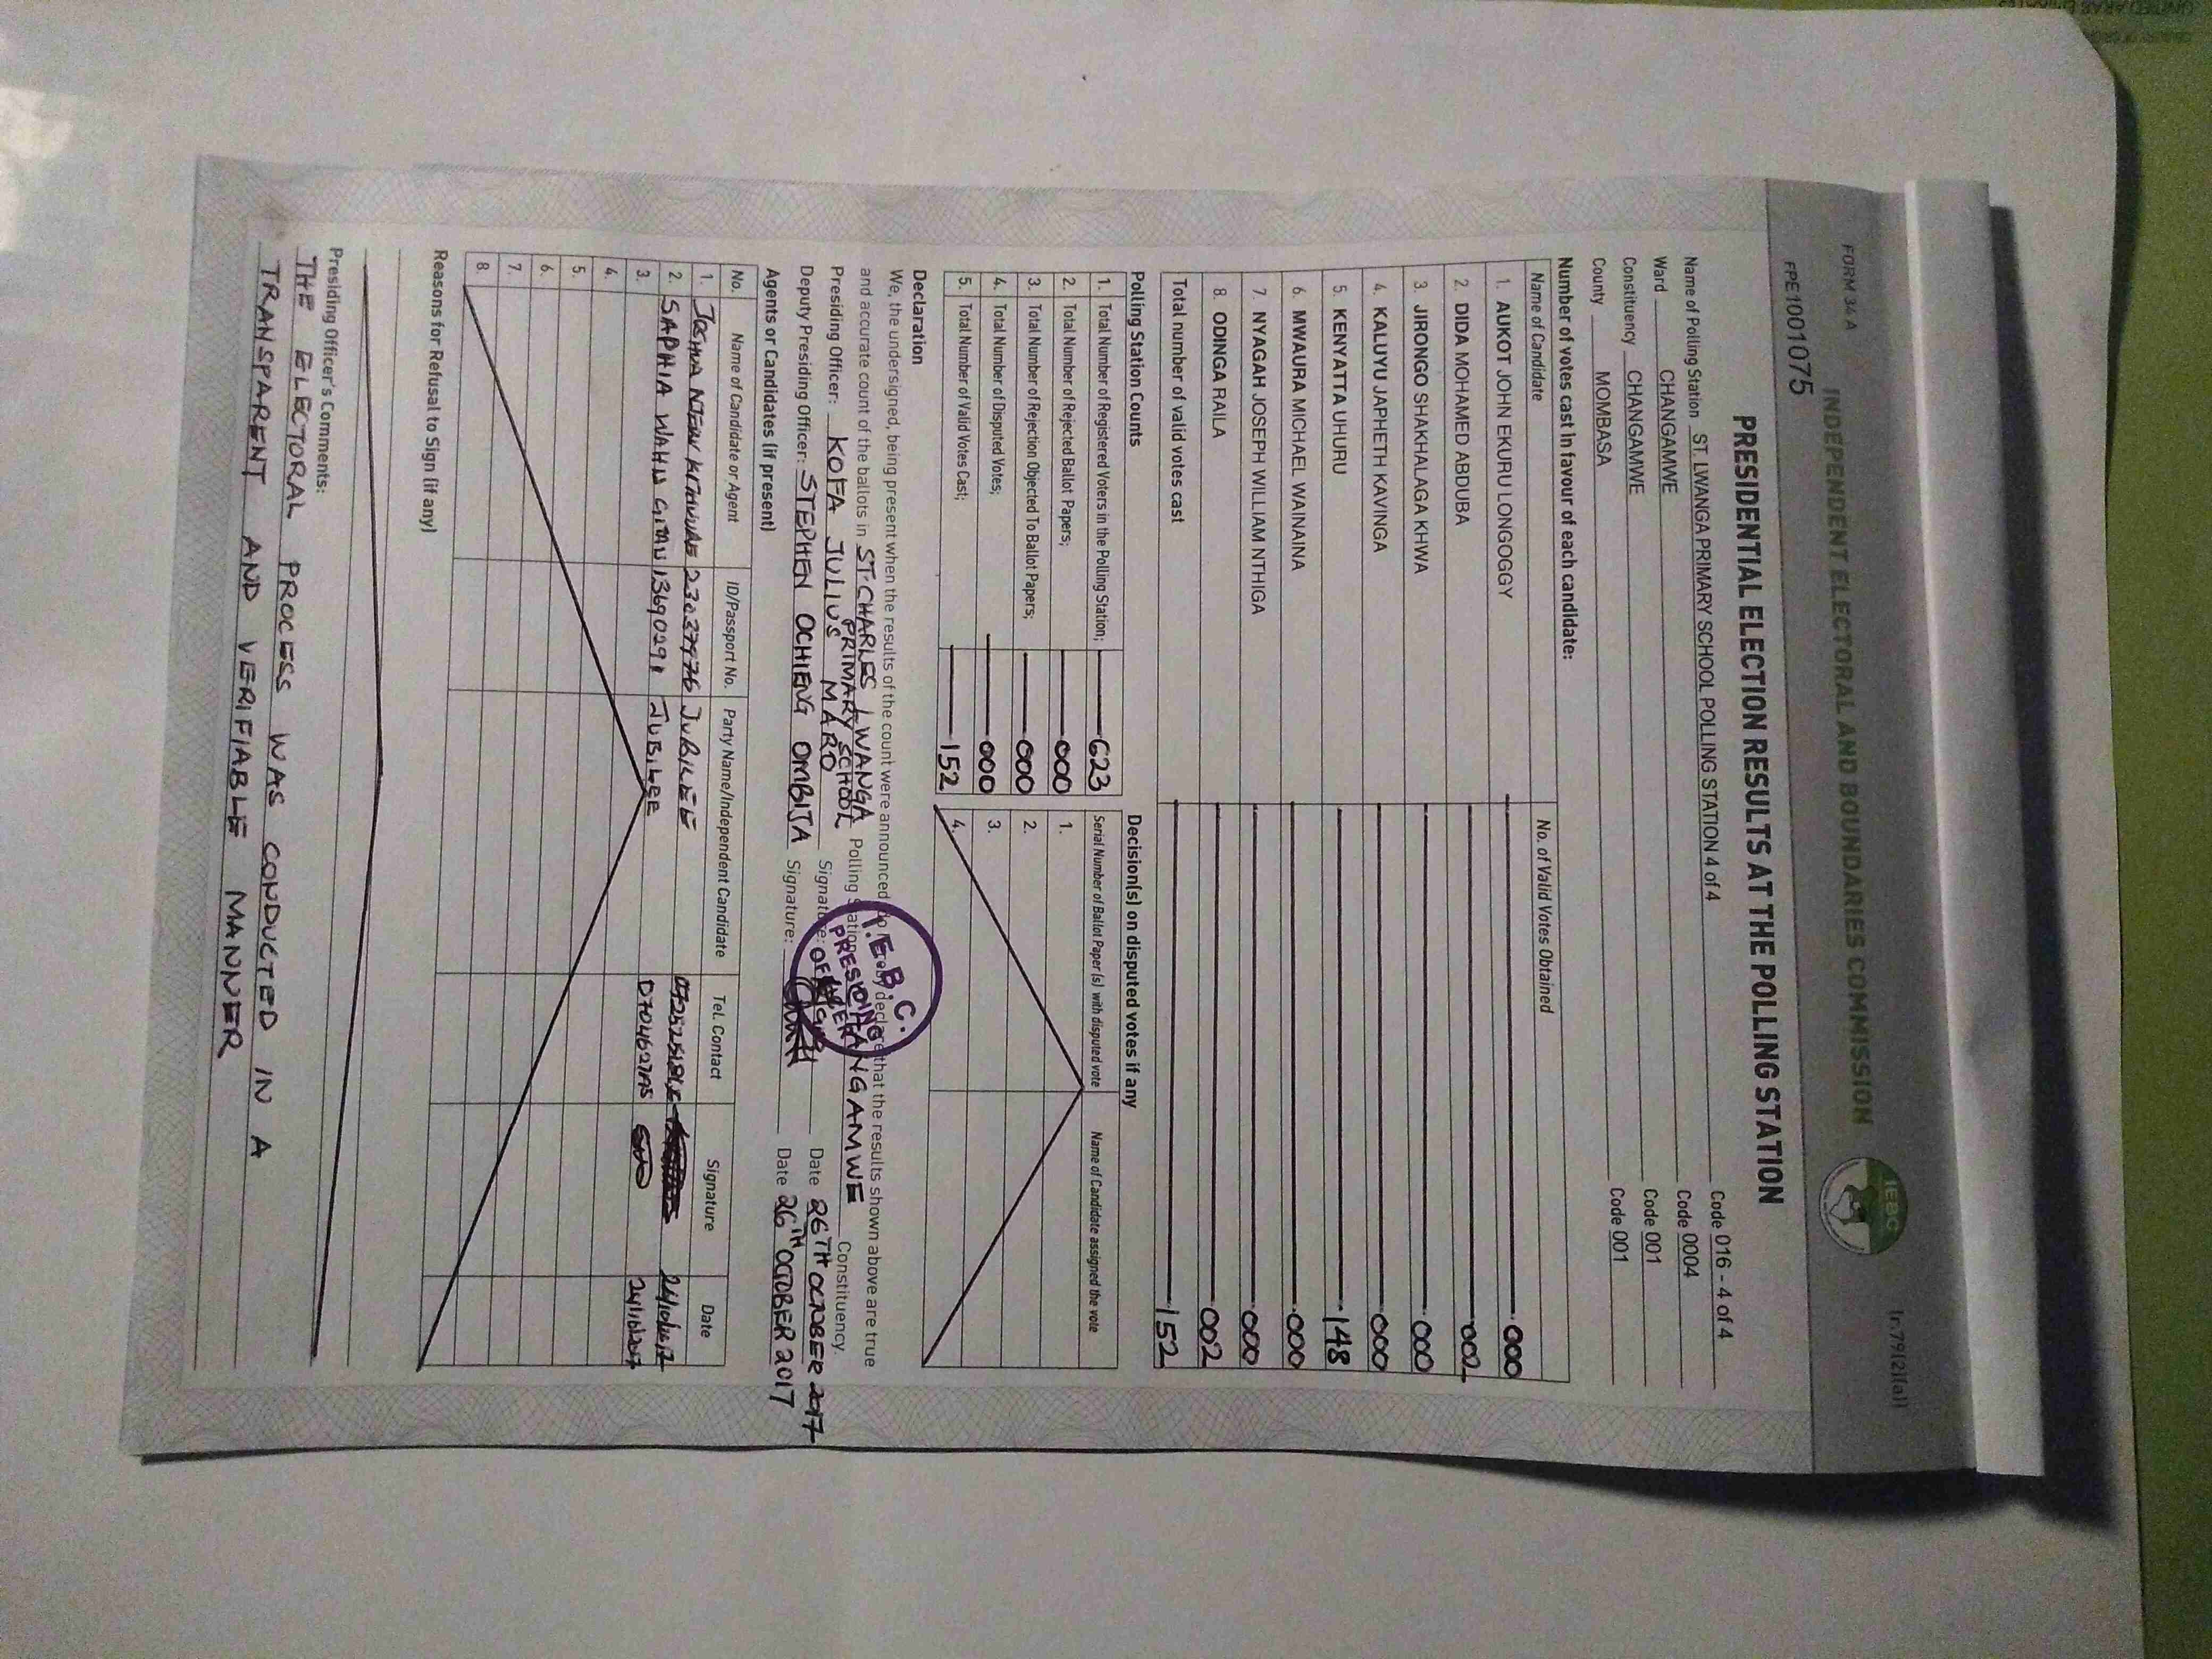 FORM 34 A
(r.79(2)(a))
INDEPENDENT ELECTORAL AND BOUNDARIES COMMISSION
IEBC
FPE1001075
PRESIDENTIAL ELECTION RESULTS AT THE POLLING STATION
Name of Polling Station ST. LWANGA PRIMARY SCHOOL POLLING STATION 4 of 4 Code 016 - 4 of 4
Ward CHANGAMWE Code 0004
Constituency CHANGAMWE Code 001
County MOMBASA Code 001
Number of votes cast in favour of each candidate:
Name of Candidate No. of Valid Votes Obtained
1. AUKOT JOHN EKURU LONGOGGY 000
2. DIDA MOHAMED ABDUBA 002
3. JIRONGO SHAKHALAGA KHWA 000
4. KALUYU JAPHETH KAVINGA 000
5. KENYATTA UHURU 148
6. MWAURA MICHAEL WAINAINA 000
7. NYAGAH JOSEPH WILLIAM NTHIGA 000
8. ODINGA RAILA 002
Total number of valid votes cast 152
Polling Station Counts
1. Total Number of Registered Voters in the Polling Station; 623
2. Total Number of Rejected Ballot Papers; 000
3. Total Number of Rejection Objected To Ballot Papers; 000
4. Total Number of Disputed Votes; 000
5. Total Number of Valid Votes Cast; 152
Decision(s) on disputed votes if any
Serial Number of Ballot Paper(s) with disputed vote Name of Candidate assigned the vote
1.
2.
3.
4.
Declaration
We, the undersigned, being present when the results of the count were announced do hereby declare that the results shown above are true
and accurate count of the ballots in ST. CHARLES LWANGA PRIMARY SCHOOL Polling Station CHANGAMWE Constituency.
Presiding Officer: KOFA JULIUS MARO Signature: Date 26TH OCTOBER 2017
Deputy Presiding Officer: STEPHEN OCHIENG OMBIJA Signature: Date 26TH OCTOBER 2017
I.E.B.C.
PRESIDING
OFFICER
Agents or Candidates (if present)
No. Name of Candidate or Agent ID/Passport No. Party Name/Independent Candidate Tel. Contact Signature Date
1. JUBILEE
2. SAPHIA WAHU GITAU 13690291 JUBILEE
3.
4.
5.
6.
7.
8.
Reasons for Refusal to Sign (if any)
Presiding Officer's Comments:
THE ELECTORAL PROCESS WAS CONDUCTED IN A
TRANSPARENT AND VERIFIABLE MANNER